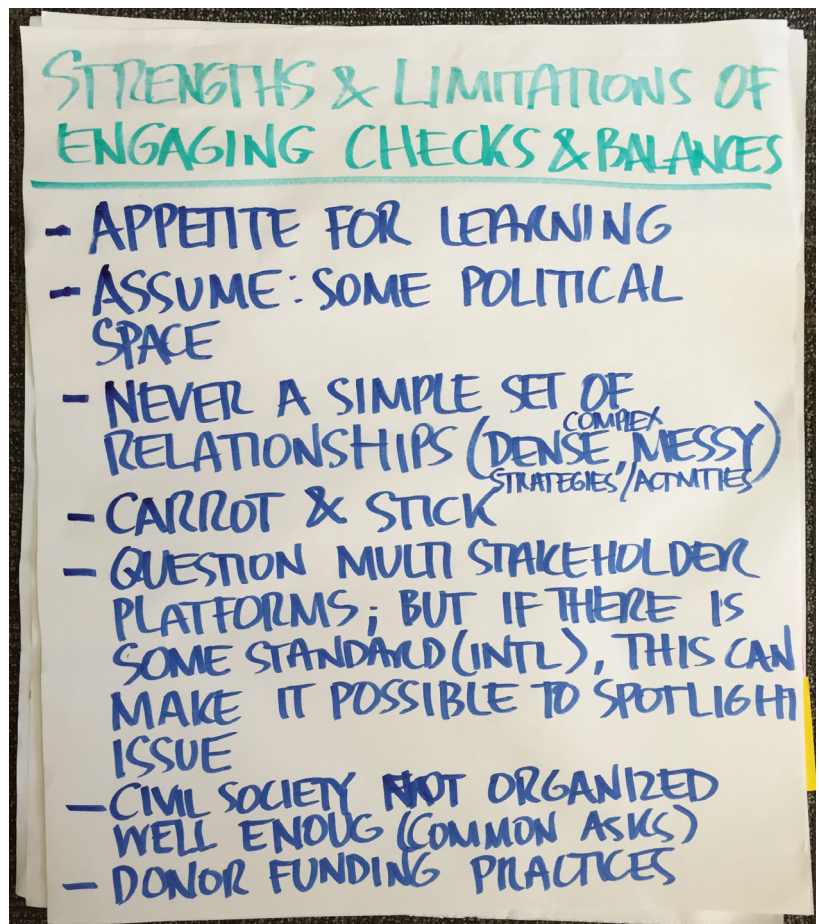 STRENGTHS & LIMITATIONS OF
ENGAGING CHECKS & BALANCES
- APPETITE FOR LEARNING
- ASSUME: SOME POLITICAL
SPACE
- NEVER A SIMPLE SET OF
COMPLEX
RELATIONSHIPS (DENSE, MESSY)
STRATEGIES/ACTIVITIES
- CARROT & STICK
- QUESTION MULTI STAKEHOLDER
PLATFORMS; BUT IF THERE IS
SOME STANDARD (INTL), THIS CAN
MAKE IT POSSIBLE TO SPOTLIGHT
ISSUE
- CIVIL SOCIETY NOT ORGANIZED
WELL ENOUG (COMMON ASKS)
- DONOR FUNDING PRACTICES